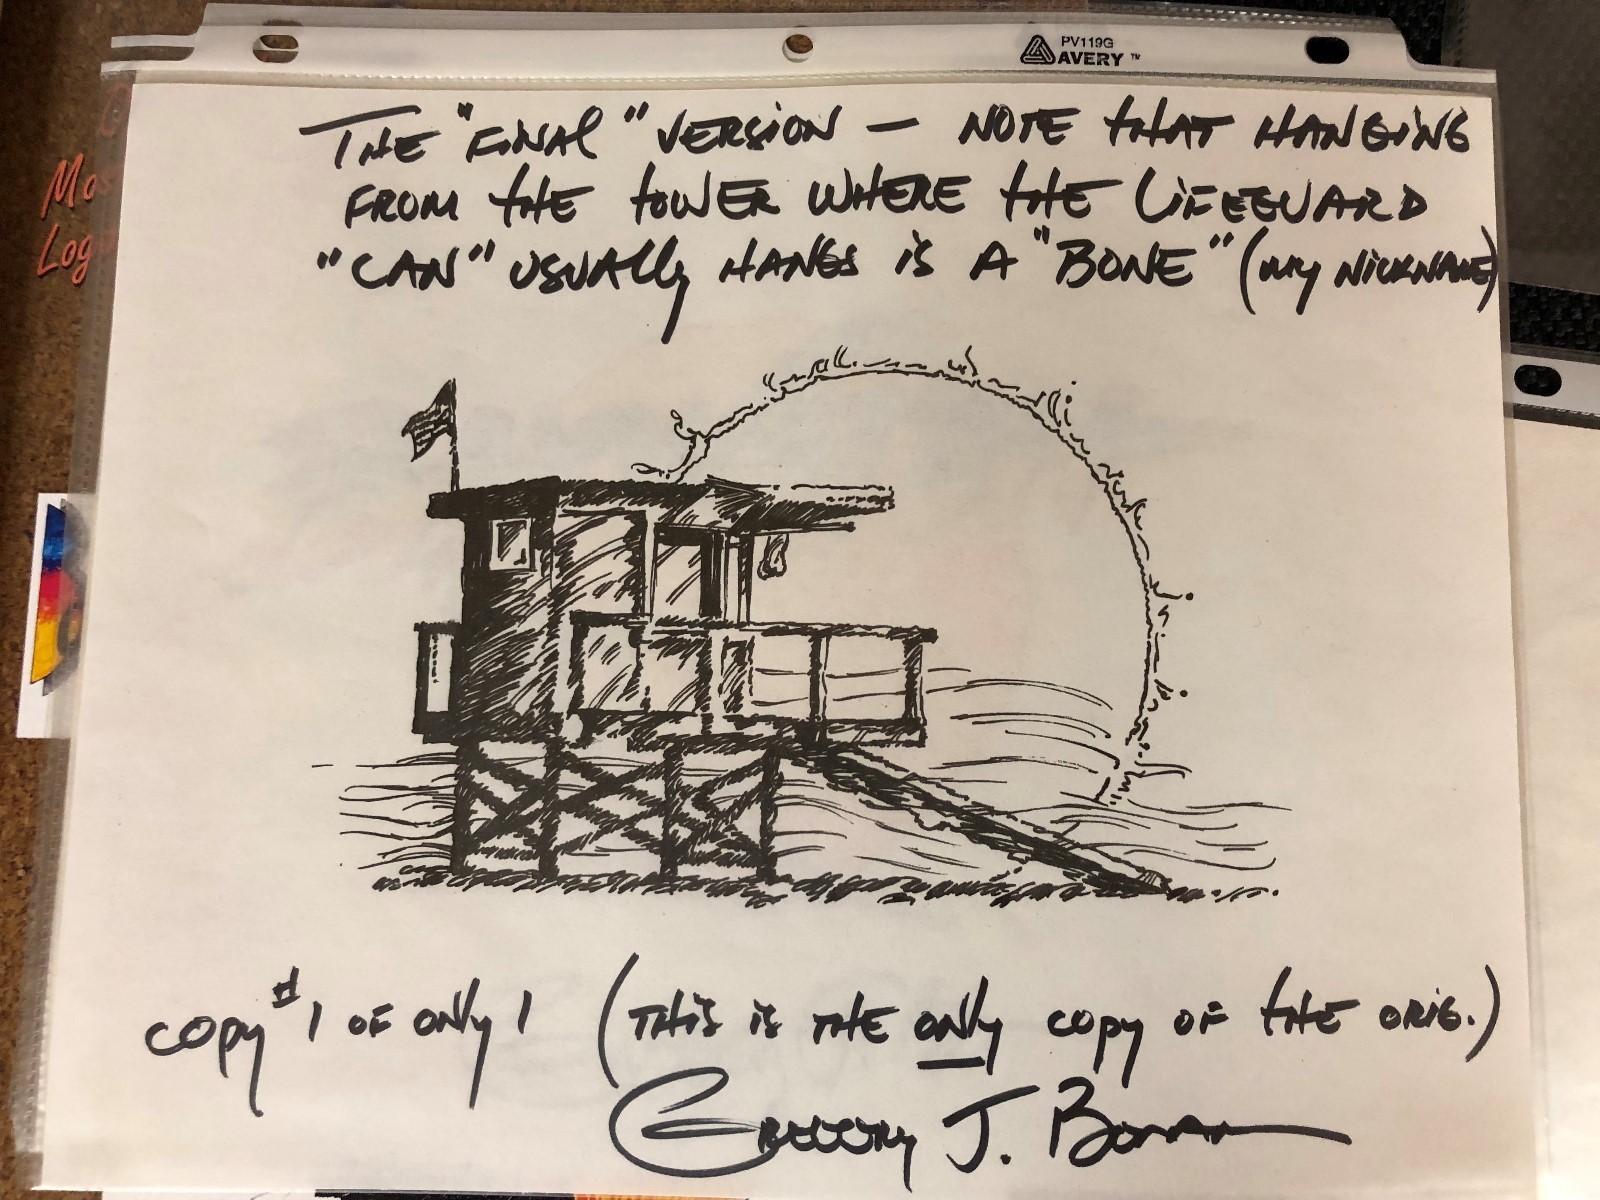 PV119G
AVERY™
THE "FINAL" VERSION — NOTE THAT HANGING
FROM THE TOWER WHERE THE LIFEGUARD
"CAN" USUALLY HANGS IS A "BONE" (MY NICKNAME)
COPY #1 OF ONLY 1 (THIS IS THE ONLY COPY OF THE ORIG.)
GREGORY J. BONANN